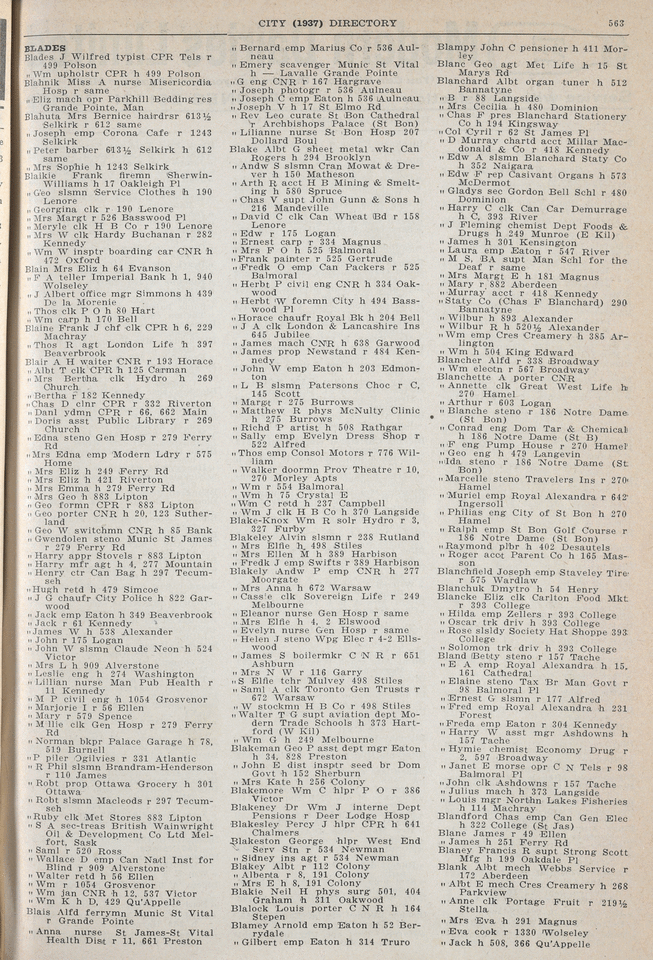 CITY (1937) DIRECTORY 563
BLADES
Blades J Wilfred typist CPR Tels r
499 Polson
„ Wm upholstr CPR h 499 Polson
Blahnik Miss A nurse Misericordia
Hosp r same
„ Eliz mach opr Parkhill Bedding res
Grande Pointe, Man
Blahuta Mrs Bernice hairdrsr 613½
Selkirk r 612 same
„ Joseph emp Corona Cafe r 1243
Selkirk
„ Peter barber 613½ Selkirk h 612
same
„ Mrs Sophie h 1243 Selkirk
Blaikie Frank firemn Sherwin-
Williams h 17 Oakleigh Pl
„ Geo slsmn Service Clothes h 190
Lenore
„ Georgina clk r 190 Lenore
„ Mrs Margt r 526 Basswood Pl
„ Meryle clk H B Co r 190 Lenore
„ Mrs W clk Hardy Buchanan r 282
Kennedy
„ Wm W insptr boarding car CNR h
472 Oxford
Blain Mrs Eliz h 64 Evanson
„ F A teller Imperial Bank h 1, 940
Wolseley
„ J Albert office mgr Simmons h 439
De la Morenie
„ Thos clk P O h 80 Hart
„ Wm carp h 170 Bell
Blaine Frank J chf clk CPR h 6, 229
Machray
„ Thos R agt London Life h 397
Beaverbrook
Blair A H waiter CNR r 193 Horace
„ Albt T clk CPR h 125 Carman
„ Mrs Bertha clk Hydro h 269
Church
„ Bertha r 182 Kennedy
„ Chas D chnr CPR r 332 Riverton
„ Danl ydmn CPR r 66, 662 Main
„ Doris asst Public Library r 269
Church
„ Edna steno Gen Hosp r 279 Ferry
Rd
„ Mrs Edna emp Modern Ldry r 575
Home
„ Mrs Eliz h 249 Ferry Rd
„ Mrs Eliz h 421 Riverton
„ Mrs Emma h 279 Ferry Rd
„ Mrs Geo h 883 Lipton
„ Geo formn CPR r 883 Lipton
„ Geo porter CNR h 20, 123 Suther-
land
„ Geo W switchmn CNR h 85 Bank
„ Gwendolen steno Munic St James
r 279 Ferry Rd
„ Harry appr Stovels r 883 Lipton
„ Harry mfr agt h 4, 277 Mountain
„ Henry ctr Can Bag h 297 Tecum-
seh
„ Hugh retd h 479 Simcoe
„ J G chaufr City Police h 822 Gar-
wood
„ Jack emp Eaton h 349 Beaverbrook
„ Jack r 61 Kennedy
„ James W h 538 Alexander
„ John r 175 Logan
„ John W slsmn Claude Neon h 524
Victor
„ Mrs L h 909 Alverstone
„ Leslie eng h 274 Washington
„ Lillian nurse Man Pub Health r
11 Kennedy
„ M P civil eng h 1054 Grosvenor
„ Marjorie I r 56 Ellen
„ Mary r 579 Spence
„ Millie clk Gen Hosp r 279 Ferry
Rd
„ Norman bkpr Palace Garage h 78,
519 Burnell
„ P piler Ogilvies r 331 Atlantic
„ R Phil slsmn Brandram-Henderson
r 110 James
„ Robt prop Ottawa Grocery h 301
Ottawa
„ Robt slsmn Macleods r 297 Tecum-
seh
„ Ruby clk Met Stores 883 Lipton
„ S A sec-treas British Wainwright
Oil & Development Co Ltd Mel-
fort, Sask
„ Saml r 520 Ross
„ Wallace D emp Can Natl Inst for
Blind r 909 Alverstone
„ Walter retd h 56 Ellen
„ Wm r 1054 Grosvenor
„ Wm jan CNR h 12, 537 Victor
„ Wm K h D, 429 Qu'Appelle
Blais Alfd ferrymn Munic St Vital
r Grande Pointe
„ Anna nurse St James-St Vital
Health Dist r 11, 661 Preston
„ Bernard emp Marius Co r 536 Aul-
neau
„ Emery scavenger Munic St Vital
h — Lavalle Grande Pointe
„ G eng CNR r 167 Hargrave
„ Joseph photogr r 536 Aulneau
„ Joseph C emp Eaton h 536 Aulneau
„ Joseph V h 17 St Elmo Rd
„ Rev Leo curate St Bon Cathedral
r Archbishops Palace (St Bon)
„ Lilianne nurse St Bon Hosp 207
Dollard Boul
Blake Albt G sheet metal wkr Can
Rogers h 294 Brooklyn
„ Andw S slsmn Cran Mowat & Dre-
ver h 150 Matheson
„ Arth R acct H B Mining & Smelt-
ing h 580 Spruce
„ Chas V supt John Gunn & Sons h
216 Mandeville
„ David C clk Can Wheat Bd r 158
Lenore
„ Edw r 175 Logan
„ Ernest carp r 334 Magnus
„ Mrs F O h 525 Balmoral
„ Frank painter r 525 Gertrude
„ Fredk O emp Can Packers r 525
Balmoral
„ Herbt P civil eng CNR h 334 Oak-
wood
„ Herbt W foremn City h 494 Bass-
wood Pl
„ Horace chaufr Royal Bk h 204 Bell
„ J A clk London & Lancashire Ins
645 Jubilee
„ James mach CNR h 638 Garwood
„ James prop Newstand r 484 Ken-
nedy
„ John W emp Eaton h 203 Edmon-
ton
„ L B slsmn Patersons Choc r C,
145 Scott
„ Margt r 275 Burrows
„ Matthew R phys McNulty Clinic
h 275 Burrows
„ Richd P artist h 508 Rathgar
„ Sally emp Evelyn Dress Shop r
522 Alfred
„ Thos emp Consol Motors r 776 Wil-
liam
„ Walker doormn Prov Theatre r 10,
270 Morley Apts
„ Wm r 554 Balmoral
„ Wm h 75 Crystal E
„ Wm C retd h 237 Campbell
„ Wm J clk H B Co h 370 Langside
Blake-Knox Wm R solr Hydro r 3,
327 Furby
Blakeley Alvin slsmn r 238 Rutland
„ Mrs Elfie h 498 Stiles
„ Mrs Ellen M h 389 Harbison
„ Fredk J emp Swifts r 389 Harbison
Blakely Andw P emp CNR h 277
Moorgate
„ Mrs Anna h 672 Warsaw
„ Cassie clk Sovereign Life r 249
Melbourne
„ Eleanor nurse Gen Hosp r same
„ Mrs Elfie h 4, 2 Elswood
„ Evelyn nurse Gen Hosp r same
„ Helen J steno Wpg Elec r 4-2 Ells-
wood
„ James S boilermkr C N R r 651
Ashburn
„ Mrs N W r 116 Garry
„ S Elfie tchr Mulvey 498 Stiles
„ Saml A clk Toronto Gen Trusts r
672 Warsaw
„ W stockmn H B Co r 498 Stiles
„ Walter T G supt aviation dept Mo-
dern Trade Schools h 373 Hart-
ford (W Kil)
„ Wm G h 249 Melbourne
Blakeman Geo P asst dept mgr Eaton
h 34, 828 Preston
„ John E dist insptr seed br Dom
Govt h 152 Sherburn
„ Mrs Kate h 256 Colony
Blakemore Wm C hlpr P O r 386
Victor
Blakeney Dr Wm J interne Dept
Pensions r Deer Lodge Hosp
Blakesley Percy J hlpr CPR h 641
Chalmers
Blakeston George hlpr West End
Serv Stn r 534 Newman
„ Sidney ins agt r 534 Newman
Blakey Albt r 112 Colony
„ Alberta r 8, 191 Colony
„ Mrs E h 8, 191 Colony
Blakie Neil H phys surg 501, 404
Graham h 311 Oakwood
Blalock Louis porter C N R h 164
Stepen
Blamey Arnold emp Eaton h 52 Ber-
rydale
„ Gilbert emp Eaton h 314 Truro
Blampy John C pensioner h 411 Mor-
ley
Blanc Geo agt Met Life h 15 St
Marys Rd
Blanchard Albt organ tuner h 512
Bannatyne
„ B r 88 Langside
„ Mrs Cecilia h 480 Dominion
„ Chas F pres Blanchard Stationery
Co h 194 Kingsway
„ Col Cyril r 62 St James Pl
„ D Murray chartd acct Millar Mac-
donald & Co r 418 Kennedy
„ Edw A slsmn Blanchard Staty Co
h 352 Naigara
„ Edw F rep Casivant Organs h 573
McDermot
„ Gladys sec Gordon Bell Schl r 480
Dominion
„ Harry C clk Can Car Demurrage
h C, 393 River
„ J Fleming chemist Dept Foods &
Drugs h 249 Munroe (E Kil)
„ James h 301 Kensington
„ Laura emp Eaton r 547 River
„ M S, BA supt Man Schl for the
Deaf r same
„ Mrs Margt E h 181 Magnus
„ Mary r 882 Aberdeen
„ Murray acct r 418 Kennedy
„ Staty Co (Chas F Blanchard) 290
Bannatyne
„ Wilbur h 893 Alexander
„ Wilbur R h 520½ Alexander
„ Wm emp Cres Creamery h 385 Ar-
lington
„ Wm h 504 King Edward
Blancher Alfd r 338 Broadway
„ Wm electn r 567 Broadway
Blanchette A porter CNR
„ Annette clk Great West Life h
270 Hamel
„ Arthur r 603 Logan
„ Blanche steno r 186 Notre Dame
(St Bon)
„ Conrad eng Dom Tar & Chemical
h 186 Notre Dame (St B)
„ F eng Pump House r 270 Hamel
„ Geo eng h 479 Langevin
„ Ida steno r 186 Notre Dame (St
Bon)
„ Marcelle steno Travelers Ins r 270
Hamel
„ Muriel emp Royal Alexandra r 642
Ingersoll
„ Philias eng City of St Bon h 270
Hamel
„ Ralph emp St Bon Golf Course r
186 Notre Dame (St Bon)
„ Raymond plbr h 402 Desautels
„ Roger acct Parent Co h 165 Mas-
son
Blanchfield Joseph emp Staveley Tire
r 575 Wardlaw
Blanchuk Dmytro h 54 Henry
Blancke Eliz clk Carlton Food Mkt
r 393 College
„ Hilda emp Zellers r 393 College
„ Oscar trk driv h 393 College
„ Rose slsldy Society Hat Shoppe 393
College
„ Solomon trk driv h 393 College
Bland Betty steno r 157 Tache
„ E A emp Royal Alexandra h 15,
161 Cathedral
„ Elaine steno Tax Br Man Govt r
98 Balmoral Pl
„ Ernest G slsmn r 177 Alfred
„ Fred emp Royal Alexandra h 231
Forest
„ Freda emp Eaton r 304 Kennedy
„ Harry W asst mgr Ashdowns h
157 Tache
„ Hymie chemist Economy Drug r
2, 597 Broadway
„ Janet E morse opr C N Tels r 98
Balmoral Pl
„ John clk Ashdowns r 157 Tache
„ Julius mach h 373 Langside
„ Louis mgr Northn Lakes Fisheries
h 114 Machray
Blandford Chas emp Can Gen Elec
h 322 College (St Jas)
Blane James r 49 Ellen
„ James h 251 Ferry Rd
Blaney Francis R supt Strong Scott
Mfg h 199 Oakdale Pl
Blank Albt mech Webbs Service r
172 Aberdeen
„ Albt E mech Cres Creamery h 268
Parkview
„ Anne clk Portage Fruit r 219½
Stella
„ Mrs Eva h 291 Magnus
„ Eva cook r 1330 Wolseley
„ Jack h 508, 366 Qu'Appelle